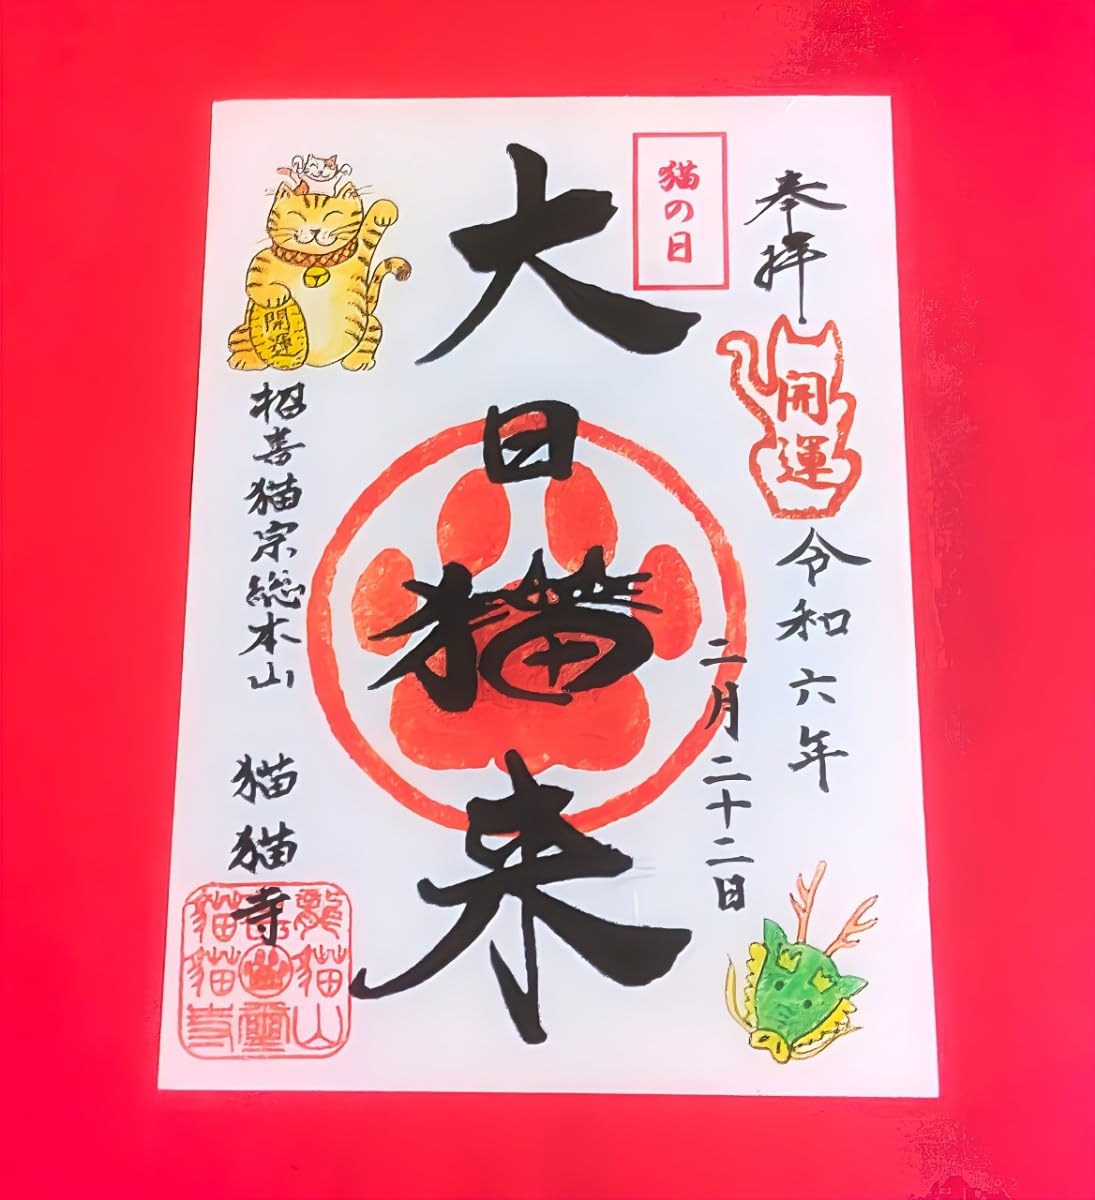 奉拝
開運
令和六年
二月二十二日
猫の日
大日猫来
開運
招喜猫宗総本山
猫猫寺
龍猫山
猫猫寺